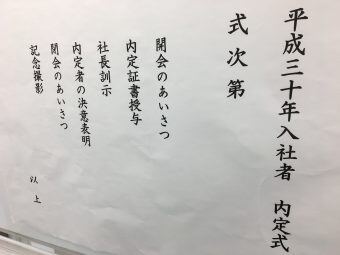 平成三十年入社者　内定式
式次第
開会のあいさつ
内定証書授与
社長訓示
内定者の決意表明
閉会のあいさつ
記念撮影
以上